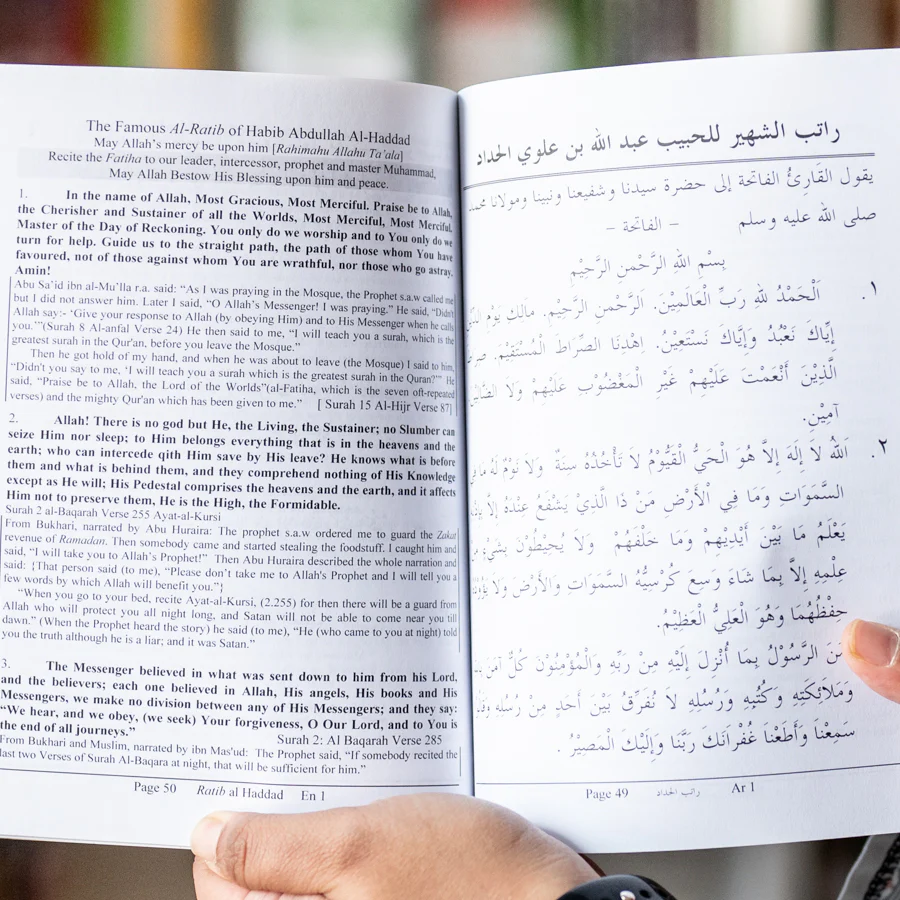 The Famous Al-Ratib of Habib Abdullah Al-Haddad
May Allah's mercy be upon him [Rahimahu Allahu Ta'ala]
Recite the Fatiha to our leader, intercessor, prophet and master Muhammad,
May Allah Bestow His Blessing upon him and peace.
1. In the name of Allah, Most Gracious, Most Merciful. Praise be to Allah,
the Cherisher and Sustainer of all the Worlds, Most Merciful, Most Merciful,
Master of the Day of Reckoning. You only do we worship and to You only do we
turn for help. Guide us to the straight path, the path of those whom You have
favoured, not of those against whom You are wrathful, nor those who go astray.
Amin!
Abu Sa'id ibn al-Mu'lla r.a. said: "As I was praying in the Mosque, the Prophet s.a.w called me
but I did not answer him. Later I said, "O Allah's Messenger! I was praying." He said, "Didn't
Allah say:- 'Give your response to Allah (by obeying Him) and to His Messenger when he calls
you.'"(Surah 8 Al-anfal Verse 24) He then said to me, "I will teach you a surah, which is the
greatest surah in the Qur'an, before you leave the Mosque."
Then he got hold of my hand, and when he was about to leave (the Mosque) I said to him,
"Didn't you say to me, 'I will teach you a surah which is the greatest surah in the Quran?'" He
said, "Praise be to Allah, the Lord of the Worlds"(al-Fatiha, which is the seven oft-repeated
verses) and the mighty Qur'an which has been given to me." [ Surah 15 Al-Hijr Verse 87]
2. Allah! There is no god but He, the Living, the Sustainer; no Slumber can
seize Him nor sleep; to Him belongs everything that is in the heavens and the
earth; who can intercede qith Him save by His leave? He knows what is before
them and what is behind them, and they comprehend nothing of His Knowledge
except as He will; His Pedestal comprises the heavens and the earth, and it affects
Him not to preserve them, He is the High, the Formidable.
Surah 2 al-Baqarah Verse 255 Ayat-al-Kursi
From Bukhari, narrated by Abu Huraira: The prophet s.a.w ordered me to guard the Zakat
revenue of Ramadan. Then somebody came and started stealing the foodstuff. I caught him and
said, "I will take you to Allah's Prophet!" Then Abu Huraira described the whole narration and
said: {That person said (to me), "Please don't take me to Allah's Prophet and I will tell you a
few words by which Allah will benefit you."}
"When you go to your bed, recite Ayat-al-Kursi, (2.255) for then there will be a guard from
Allah who will protect you all night long, and Satan will not be able to come near you till
dawn." (When the Prophet heard the story) he said (to me), "He (who came to you at night) told
you the truth although he is a liar; and it was Satan."
3. The Messenger believed in what was sent down to him from his Lord,
and the believers; each one believed in Allah, His angels, His books and His
Messengers, we make no division between any of His Messengers; and they say:
"We hear, and we obey, (we seek) Your forgiveness, O Our Lord, and to You is
the end of all journeys." Surah 2: Al Baqarah Verse 285
From Bukhari and Muslim, narrated by ibn Mas'ud: The Prophet said, "If somebody recited the
last two Verses of Surah Al-Baqara at night, that will be sufficient for him."
Page 50 Ratib al Haddad En 1
راتب الشهير للحبيب عبد الله بن علوي الحداد
يقول القَارِئُ الفاتحة إلى حضرة سيدنا وشفيعنا ونبينا ومولانا محمد
صلى الله عليه وسلم – الفاتحة –
بِسْمِ اللهِ الرَّحْمنِ الرَّحِيْمِ
١. اَلْحَمْدُ للهِ رَبِّ الْعَالَمِيْنَ. الرَّحْمنِ الرَّحِيْمِ. مالِكِ يَوْمِ
إِيَّاكَ نَعْبُدُ وَإِيَّاكَ نَسْتَعِيْنُ. اهْدِنَا الصِّرَاطَ الْمُسْتَقِيْمَ.
الَّذِيْنَ أَنْعَمْتَ عَلَيْهِمْ غَيْرِ الْمَغْضُوْبِ عَلَيْهِمْ وَلاَ
آمِيْنِ.
٢. اَللهُ لاَ إِلَهَ إِلاَّ هُوَ الْحَيُّ الْقَيُّوْمُ لاَ تَأْخُذُهُ سِنَةٌ وَلاَ نَوْمٌ لَهُ مَا
السَّمَوَاتِ وَمَا فِي الْأَرْضِ مَنْ ذَا الَّذِيْ يَشْفَعُ عِنْدَهُ إِلاَّ
يَعْلَمُ مَا بَيْنَ أَيْدِيْهِمْ وَمَا خَلْفَهُمْ وَلاَ يُحِيْطُوْنَ بِشَيْءٍ
عِلْمِهِ إِلاَّ بِمَا شَاءَ وَسِعَ كُرْسِيُّهُ السَّمَوَاتِ وَالأَرْضَ وَلاَ
حِفْظُهُمَا وَهُوَ الْعَلِيُّ الْعَظِيْمُ.
الرَّسُوْلُ بِمَا أُنْزِلَ إِلَيْهِ مِنْ رَبِّهِ وَالْمُؤْمِنُوْنَ كُلٌّ آمَنَ
وَمَلاَئِكَتِهِ وَكُتُبِهِ وَرُسُلِهِ لاَ نُفَرِّقُ بَيْنَ أَحَدٍ مِنْ رُسُلِهِ
سَمِعْنَا وَأَطَعْنَا غُفْرَانَكَ رَبَّنَا وَإِلَيْكَ الْمَصِيْرُ .
Page 49 راتب الحداد Ar 1